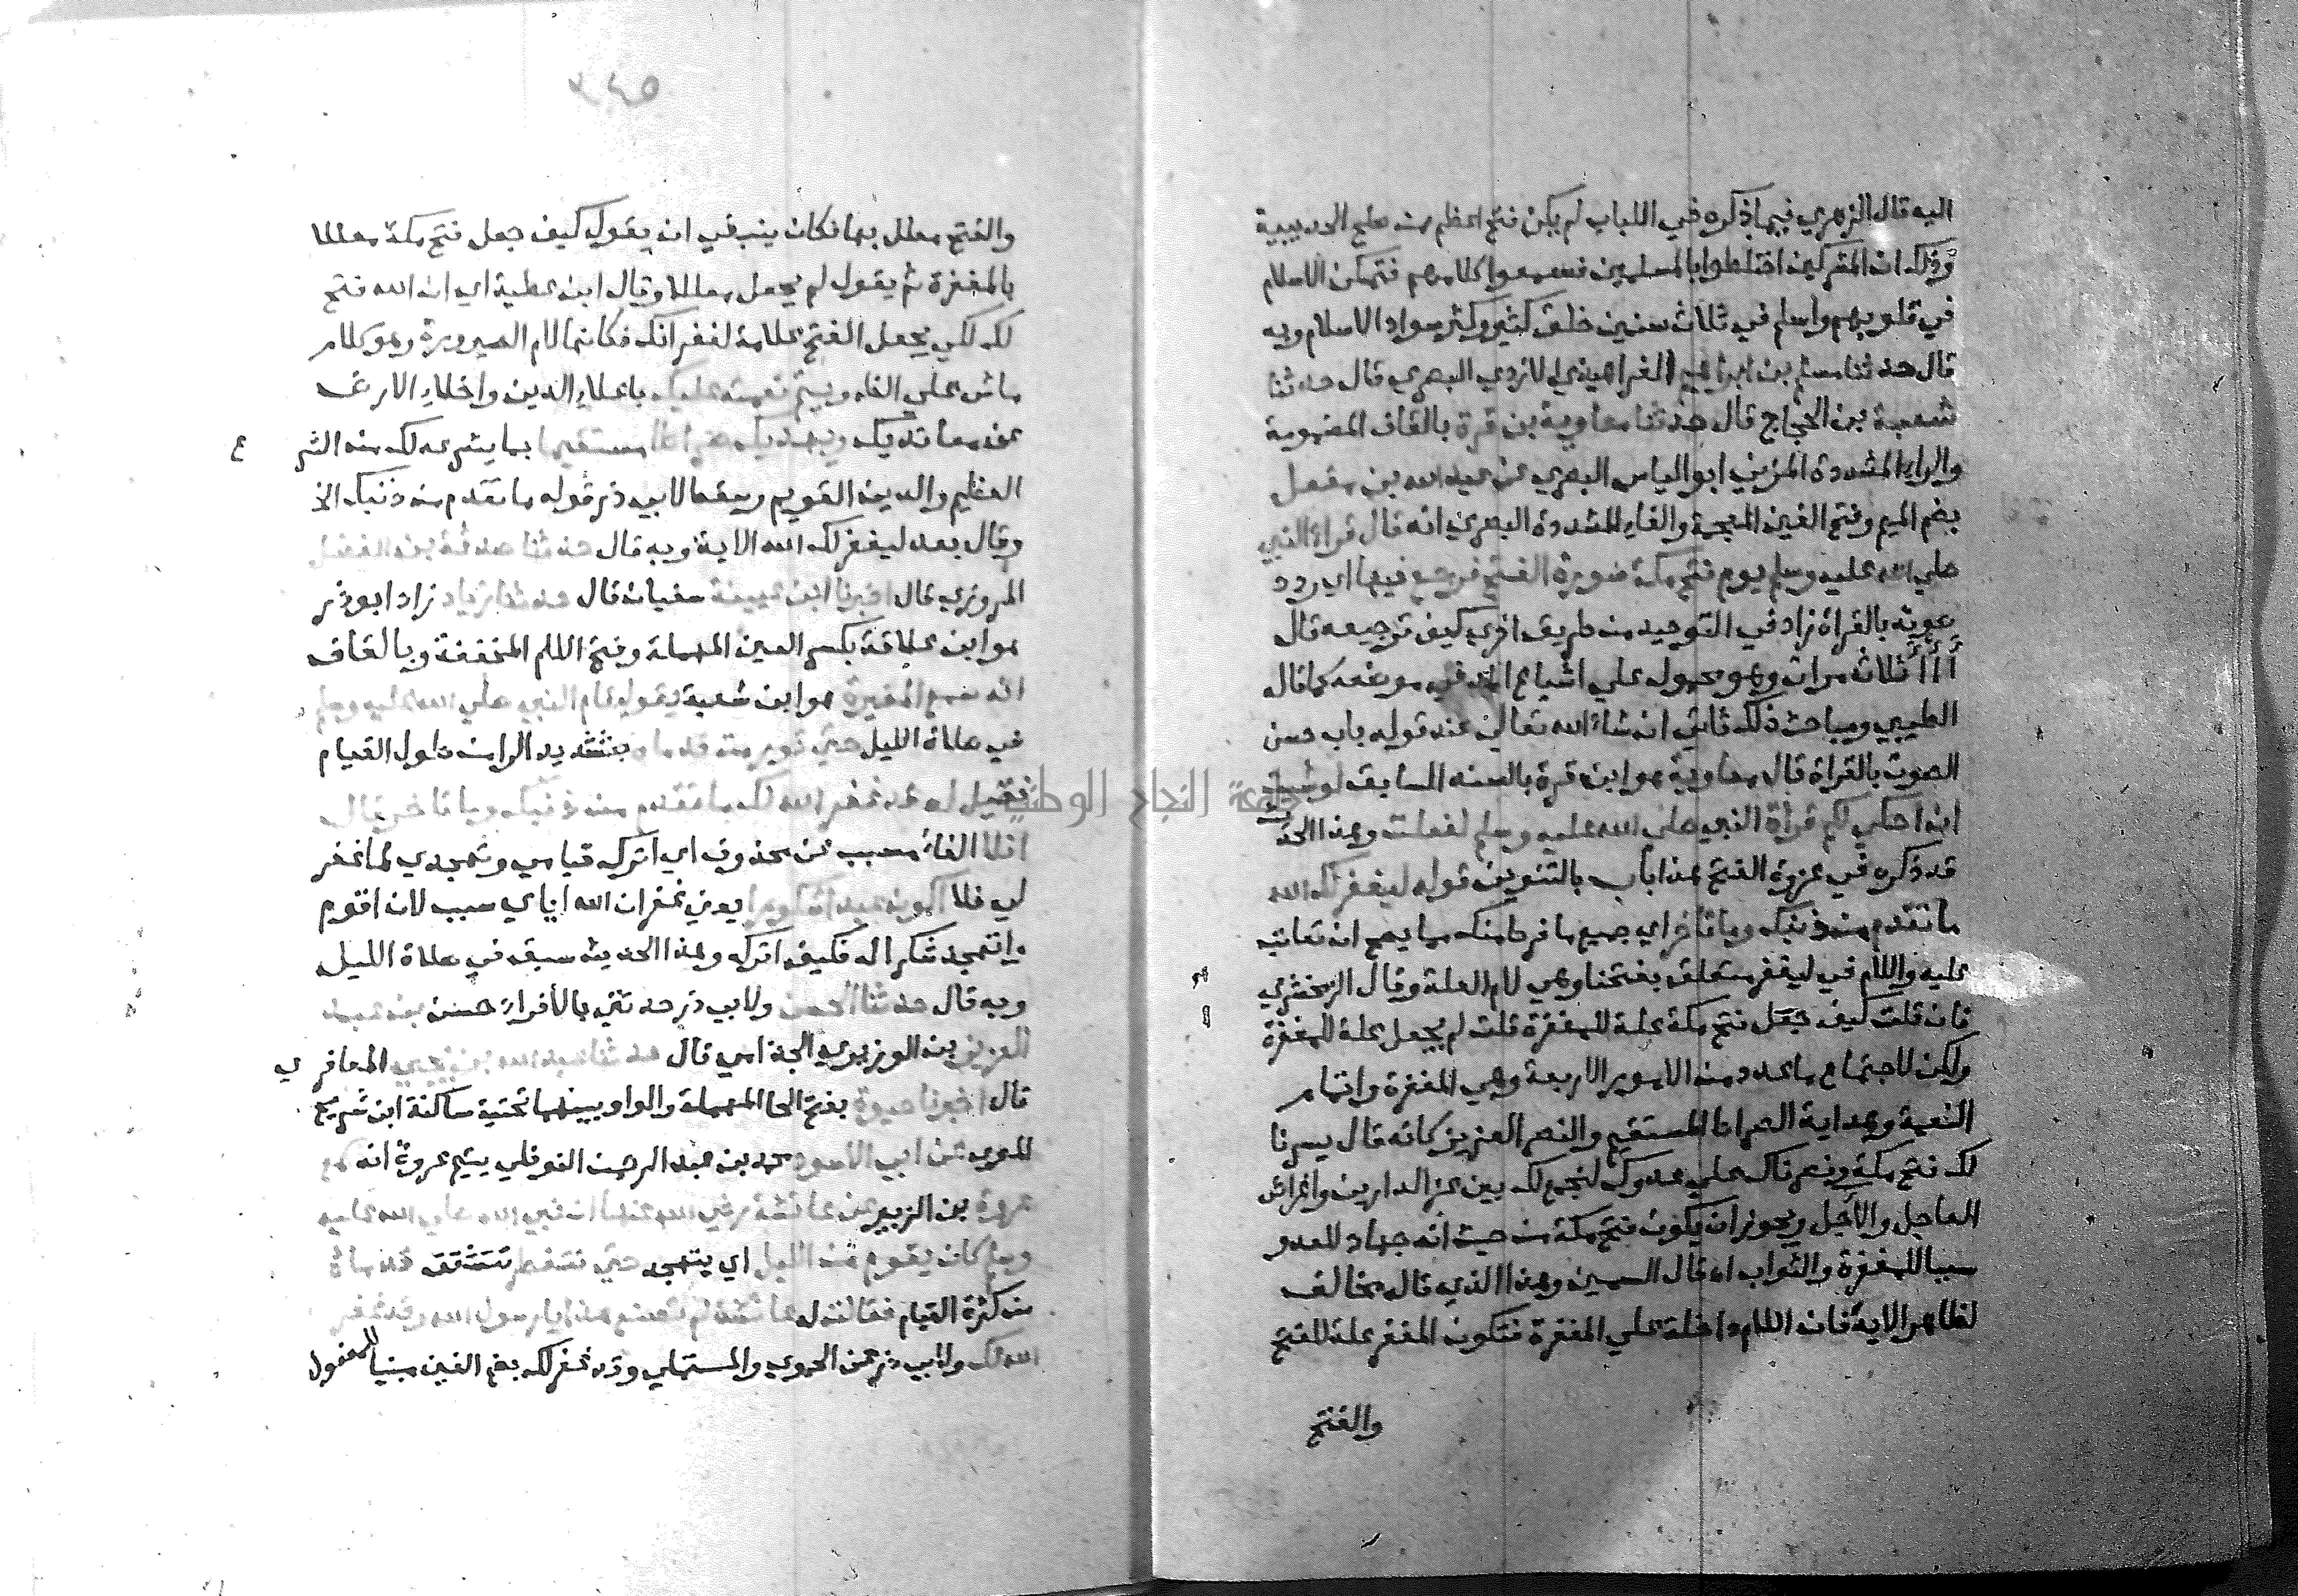 اليه قال الزهري فيما ذكره في اللباب لم يكن فتح اعظم من صلح الحديبية
وذلك ان المشركين اختلطوا بالمسلمين فسمعوا كلامهم فتمكن الاسلام
في قلوبهم واسلم في ثلاث سنين خلق كثير وكثر سواد الاسلام وبه
قال حدثنا مسلم بن ابراهيم الفراهيدي الازدي البصري قال حدثنا
شعبة بن الحجاج قال حدثنا معاوية بن قرة بالقاف المضمومة
والراء المشددة المزني ابو اياس البصري عن عبد الله بن مغفل
بضم الميم وفتح الغين المعجمة والفاء المشددة البصري انه قال قراء النبي
صلي الله عليه وسلم يوم فتح مكة سورة الفتح فرجع فيها اي ردد
صوته بالقراة زاد في التوحيد من طريق اخري كيف ترجيعه قال
أ أ أ ثلاث مرات وهو محمول علي اشباع المد في موضعه كما قال
الطيبي ومباحث ذلك تاتي ان شاء الله تعالي عند قوله باب حسن
الصوت بالقراة قال معاوية هو ابن قرة بالسند السابق لو شيت
ان احكي لكم قراة النبي صلي الله عليه وسلم لفعلت وهذا الحديث
قد ذكره في غزوة الفتح هذا باب بالتنوين قوله ليغفر لك الله
ما تقدم من ذنبك وما تاخر اي جميع ما فرط منك مما يصح ان تعاتب
عليه واللام في ليغفر متعلق بفتحنا وهي لام العلة وقال الزمخشري
فان قلت كيف جعل فتح مكة علة للمغفرة قلت لم يجعل علة للمغفرة
ولكن لاجتماع ما عدد من الامور الاربعة وهي المغفرة واتمام
النعمة وهداية الصراط المستقيم والنصر العزيز كانه قال يسرنا
لك فتح مكة ونصرناك علي عدوك لنجمع لك بين عز الدارين واغراض
العاجل والآجل ويجوز ان يكون فتح مكة من حيث انه جهاد للعدو
سببا للمغفرة والثواب اه قال السمين وهذا الذي قاله مخالف
لظاهر الاية فان اللام داخلة علي المغفرة فتكون المغفر علة للفتح
والفتح
٣٤٥
والفتح معلل بها فكان ينبغي ان يقول كيف جعل فتح مكة معللا
بالمغفرة ثم يقول لم يجعل معللا وقال ابن عطية اي ان الله فتح
لك لكي يجعل الفتح علامة لغفرانك فكانها لام الصيرورة وهو كلام
ماش علي الظاهر ويتم نعمته عليك باعلاء الدين واخلاء الارض
عن معانديك ويهديك صراطا مستقيما بما يشرعه لك من الشرع
العظيم والدين القويم وسقط لابي ذر قوله ما تقدم من ذنبك الخ
وقال بعد ليغفر لك الله الاية وبه قال حدثنا صدقة بن الفضل
المروزي قال اخبرنا ابن عيينة سفيان قال حدثنا زياد زاد ابو ذر
هو ابن علاقة بكسر العين المهملة وفتح اللام المخففة وبالقاف
انه سمع المغيرة هو ابن شعبة يقول قام النبي صلي الله عليه وسلم
في صلاة الليل حتي تورمت قدماه بتشديد الرا من طول القيام
فقيل له قد غفر الله لك ما تقدم من ذنبك وما تاخر قال
افلا الفاء مسبب عن محذوف اي اترك قيامي وتهجدي لما غفر
لي فلا اكون عبدا شكورا يعني غفران الله اياي سبب لان اقوم
واتهجد شكرا له فكيف اتركه وهذا الحديث سبق في صلاة الليل
وبه قال حدثنا الحسن ولابي ذر حدثني بالافراد حسن بن عبد
العزيز بن الوزير الجذامي قال حدثنا عبد الله بن يحيي المعافري
قال اخبرنا حيوة بفتح الحا المهملة والواو بينهما تحتية ساكنة ابن شريح
المصري عن ابي الاسود محمد بن عبد الرحمن النوفلي يتيم عروة انه سمع
عروة بن الزبير عن عائشة رضي الله عنها ان نبي الله صلي الله عليه
وسلم كان يقوم من الليل اي يتهجد حتي تتفطر تتشقق قدماه
من كثرة القيام فقالت له عائشة لم تصنع هذا يا رسول الله وقد غفر
الله لك ولابي ذر عن الحموي والمستملي وقد غفر لك بضم الغين مبنيا للمفعول
جامعة النجاح الوطنية